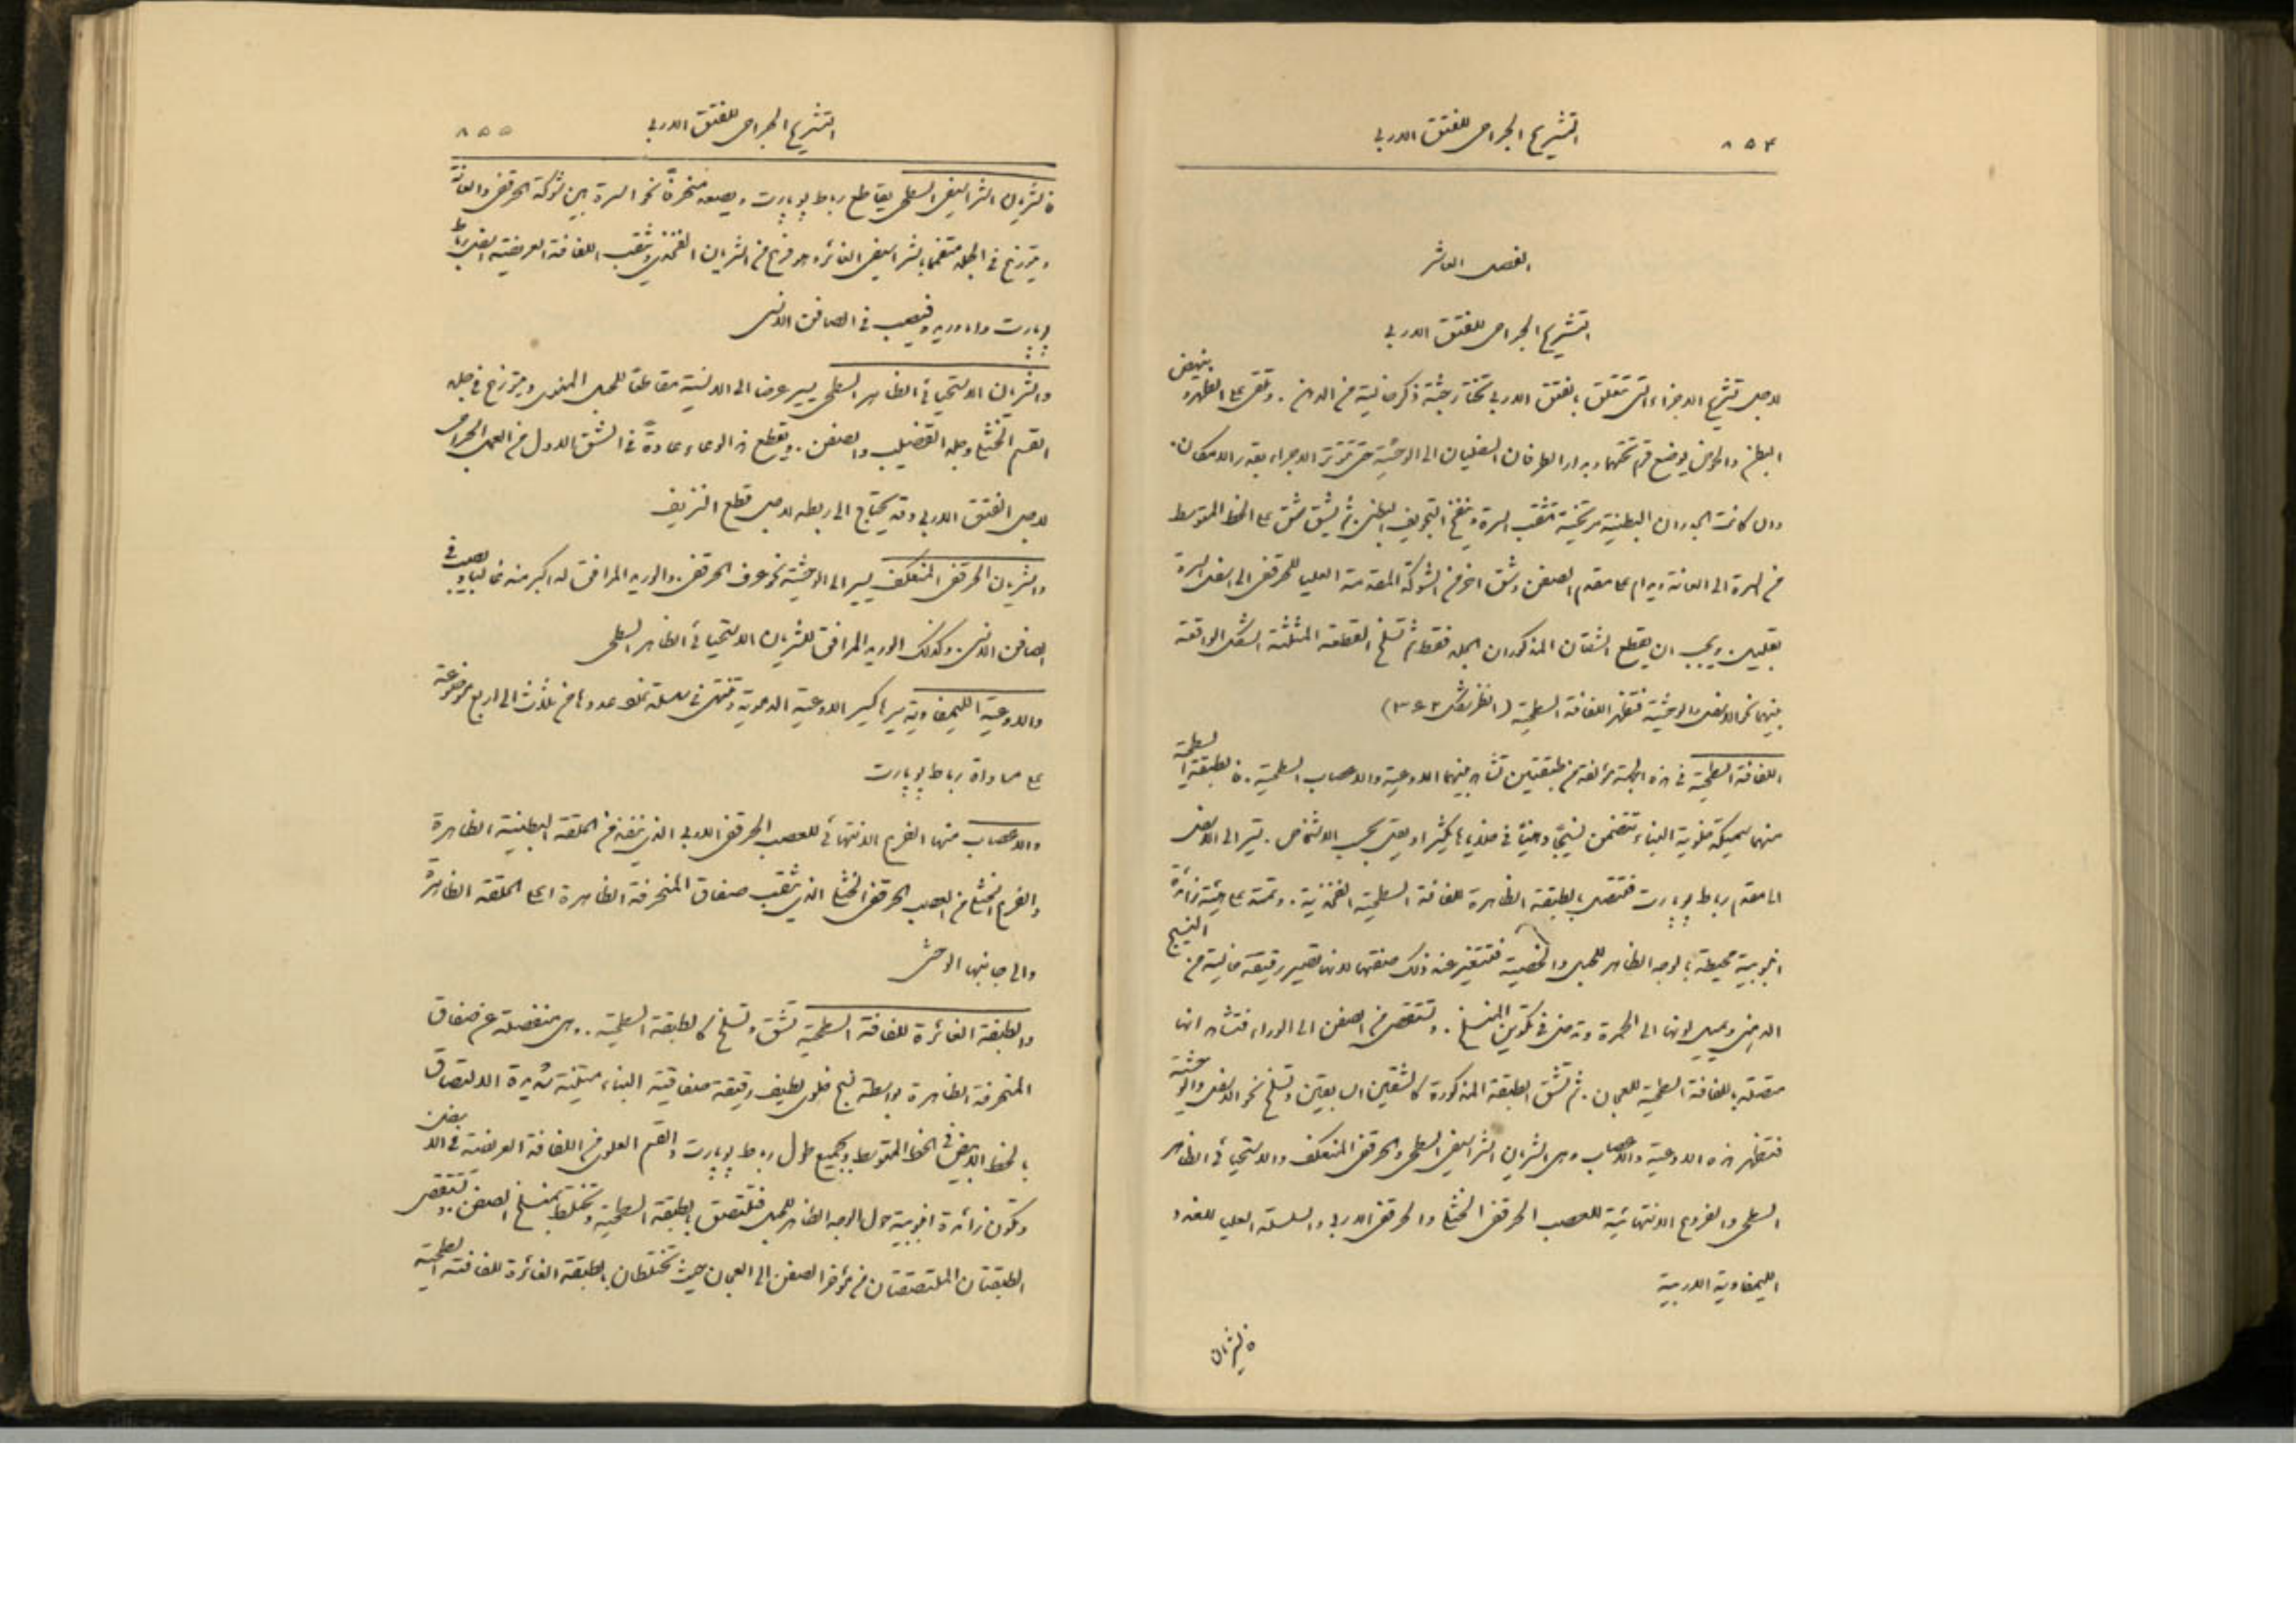 ٨٥٤ التشريح الجراحي للفتق الاربي
الفصل العاشر
التشريح الجراحي للفتق الاربي
لاجل تشريح الاجزاء التي تتعلق بالفتق الاربي تختار جثة ذكر خالية من الدهن . وتلقى على الظهر وينهض
البطن والحوض بوضع قرم تحتهما ويدار الطرفان السفليان الى الوحشية حتى تتوتر الاجزاء بقدر الامكان .
وان كانت الجدران البطنية مرتخية تثقب السرة وينفخ التجويف البطني . ثم يشق شق على الخط المتوسط
من السرة الى العانة ويدام على مقدم الصفن وشق اخر من الشوكة المقدمة العليا للحرقفي الى اسفل السرة
بقليل . ويجب ان يقطع الشقان المذكوران الجلد فقط ثم تسلخ القطعة المثلثة الشكل الواقعة
بينهما نحو الاسفل والوحشية فتظهر اللفافة السطحية (انظر شكل ٢ و ٣)
اللفافة السطحية في هذه الجهة مؤلفة من طبقتين تشاهد بينهما الاوعية والاعصاب السطحية . فالطبقة السطحية
منهما سميكة خلوية البناء تتضمن نسيجا دهنيا في خلاياها يكثر او يقل بحسب الاشخاص . تسير الى الاسفل
الى مقدم رباط بوبارت فتتصل بالطبقة الظاهرة للفافة السطحية الفخذية . وتمتد على هيئة زائدة
انبوبية محيطة بالوجه الظاهر للحبل والخصية فتتغير عند ذلك صفتها لانها تصير رقيقة خالية من النسيج
الدهني ويميل لونها الى الحمرة وتدخل في تكوين المنسلخ . وتتصل من الصفن الى الوراء فتشاهد انها
متصلة باللفافة السطحية للعجان . ثم تشق الطبقة المذكورة كالشقين السابقين وتسلخ نحو الاسفل والوحشية
فتظهر هذه الاوعية والاعصاب وهي الشريان الشراسيفي السطحي والحرقفي المنعكف والاستحيائي الظاهر
السطحي والفروع الانتهائية للعصب الحرقفي الخثلي والحرقفي الاربي والسلسلة العليا للغدد
الليمفاوية الاربية
فالشريان
التشريح الجراحي للفتق الاربي ٨٥٥
فالشريان الشراسيفي السطحي يقاطع رباط بوبارت ويصعد منحرفًا نحو السرة بين شوكة الحرقفي والعانة
ويتوزع في الجلد متفمما بالشراسيفي الغائر وهو فرع من الشريان الفخذي ويثقب اللفافة العريضية اسفل رباط
بوبارت واما وريده فيصب في الصافن الانسي
والشريان الاستحيائي الظاهر السطحي يسير عرضا الى الانسية مقاطعا للحبل المنوي ويتوزع في جلد
القسم الخثلي وجلد القضيب والصفن . ويقطع هذا الوعاء عادةً في الشق الاول من العمل الجراحي
لاجل الفتق الاربي وقد يحتاج الى ربطه لاجل قطع النزيف
والشريان الحرقفي المنعكف يسير الى الوحشية نحو عرف الحرقفي . والوريد المرافق له اكبر منه غالبا ويصب في
الصافن الانسي . وكذلك الوريد المرافق للشريان الاستحيائي الظاهر السطحي
والاوعية الليمفاوية سيرها كسير الاوعية الدموية وتنتهي في سلسلة غدد عددها من ثلاث الى اربع موضوعة
على مساواة رباط بوبارت
والاعصاب منها الفرع الانتهائي للعصب الحرقفي الاربي الذي ينفذ من الحلقة البطنية الظاهرة
والفرع الخثلي من العصب الحرقفي الخثلي الذي يثقب صفاق المنحرفة الظاهرة اعلى الحلقة الظاهرة
والى جانبها الوحشي
والطبقة الغائرة للفافة السطحية تشق وتسلخ كالطبقة السطحية . وهي منفصلة عن صفاق
المنحرفة الظاهرة بواسطة نسيج خلوي لطيف رقيقة صفاقية البناء متينة شديدة الالتصاق
بالخط الابيض في الخط المتوسط وبجميع طول رباط بوبارت والقسم العلوي من اللفافة العريضة في الا
وتكون زائدة انبوبية حول الوجه الظاهر للحبل فتلتصق بالطبقة السطحية وتختلط بمنسلخ الصفن . وتتصل
الطبقتان الملتصقتان من مؤخر الصفن الى العجان حيث تختلطان بالطبقة الغائرة للفافة السطحية